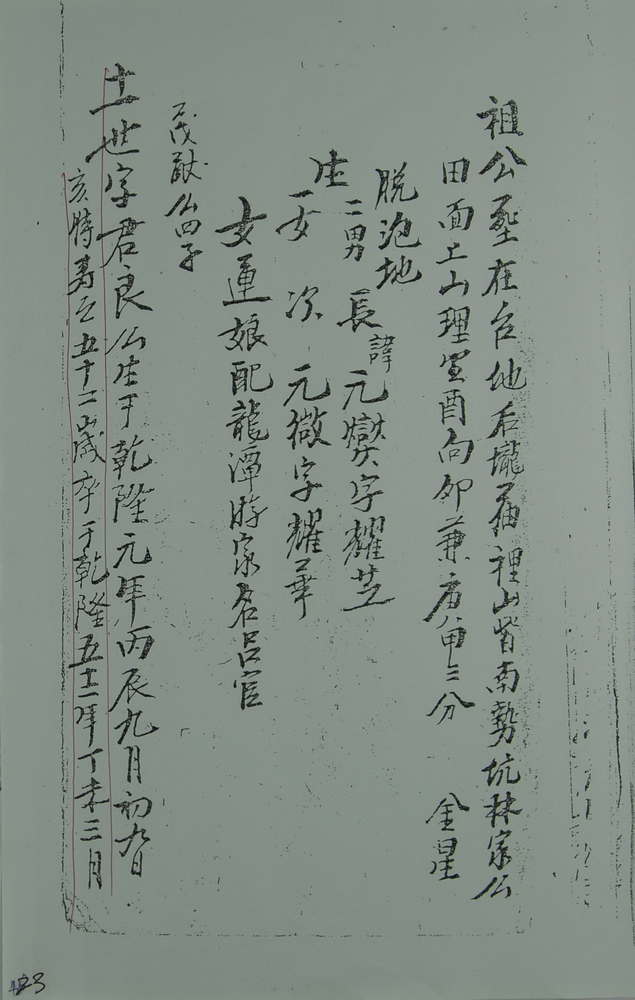 祖公坔在台地后壠届裡山背南勢坑林家公
田面上山理坐酉向卯兼庚甲三分 金星
脱泡地
生二男 長諱元爕字耀芝
一女 次 元微字耀華
女運娘配龍潭游家名吕官
茂猷公四子
十一世字君良公生于乾隆元年丙辰九月初九日
亥時壽之五十二歲卒于乾隆五十二年丁未三月
423